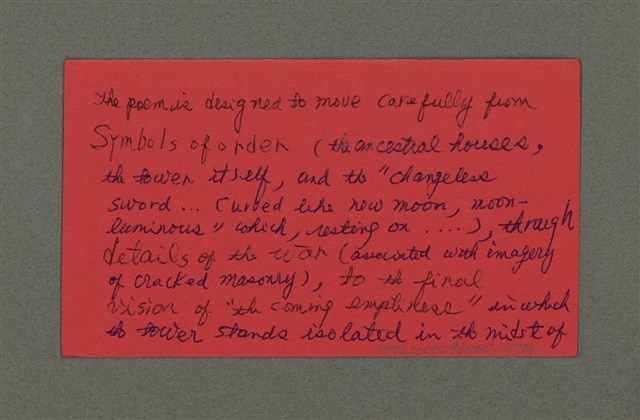 The poem is designed to move carefully from
Symbols of order (the ancestral houses,
the tower itself, and th "changeless
sword... Curved like new moon, moon-
luminous" which, resting on ....), through
details of the war (associated with imagery
of cracked masonry), to th final
vision of "the coming emptiness" in which
th tower stands isolated in th midst of